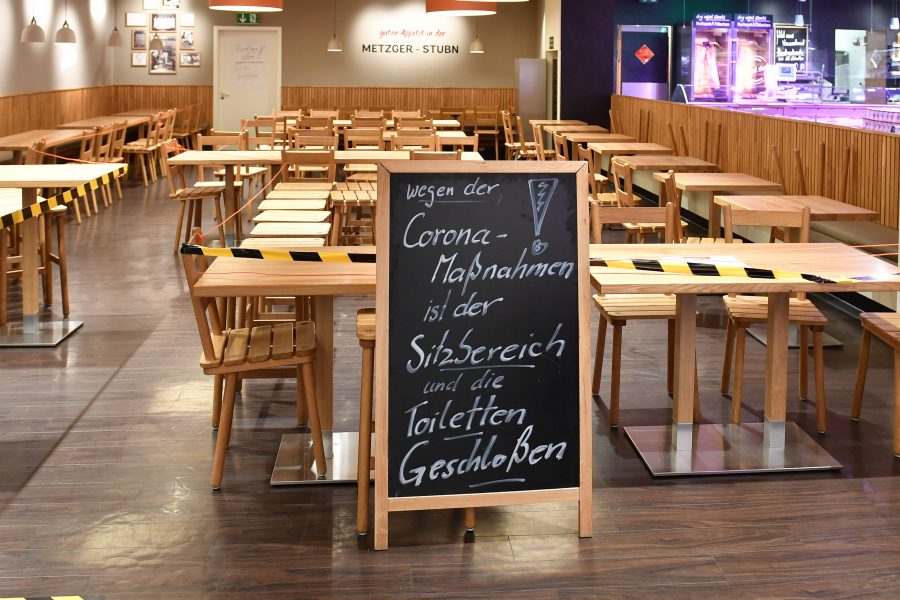 guten Appetit in der
METZGER - STUBN
wegen der
Corona-
Maßnahmen
ist der
Sitzbereich
und die
Toiletten
Geschloßen